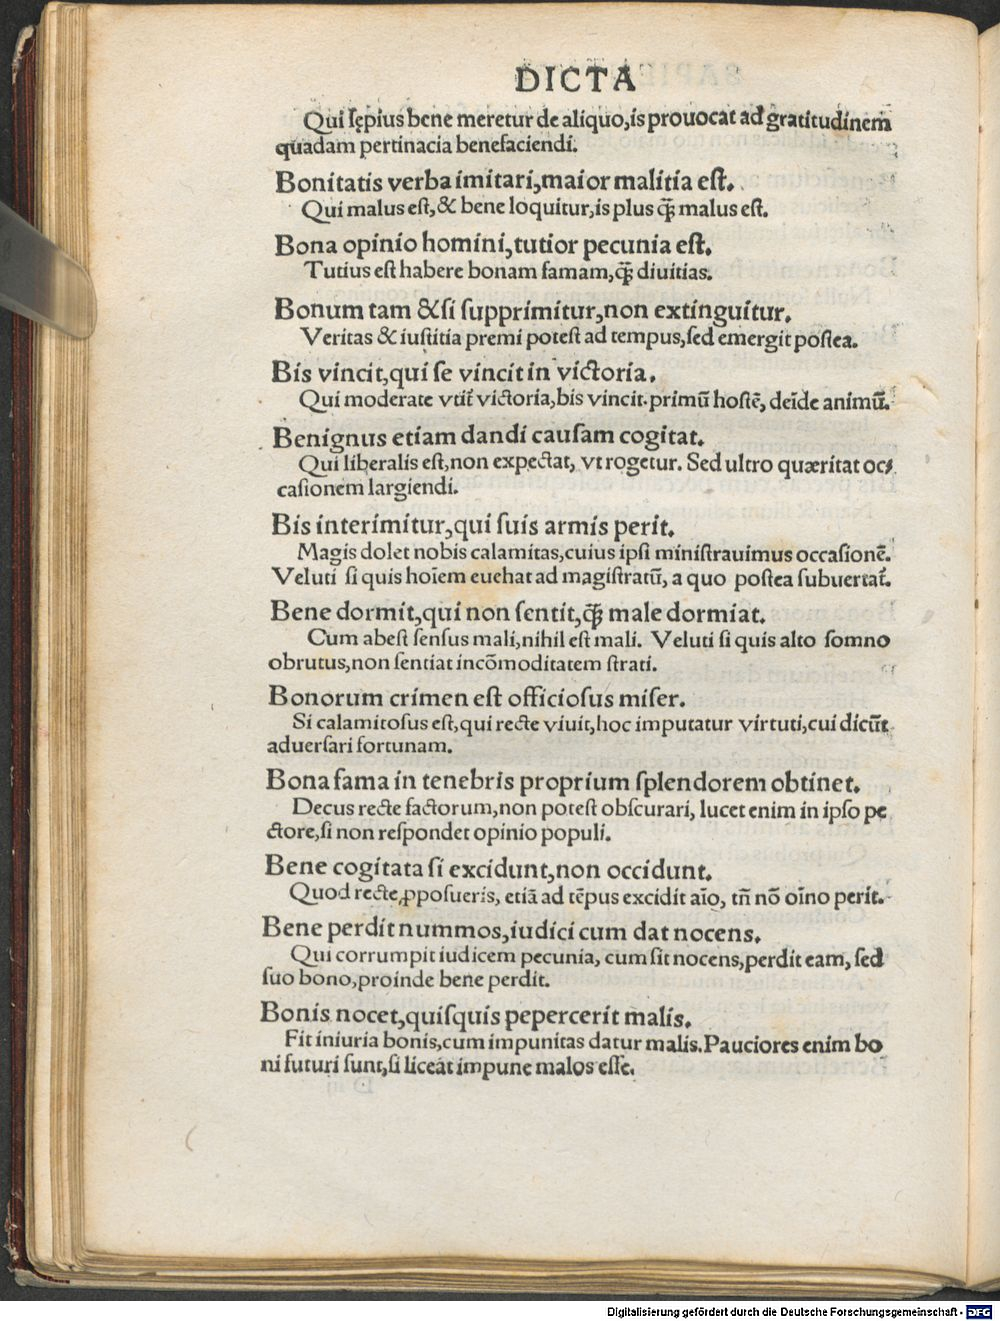 DICTA
Qui sępius bene meretur de aliquo,is prouocat ad gratitudinem
quadam pertinacia benefaciendi.
Bonitatis verba imitari,maior malitia est.
Qui malus est,& bene loquitur,is plus q̃ꝫ malus est.
Bona opinio homini,tutior pecunia est.
Tutius est habere bonam famam,q̃ꝫ diuitias.
Bonum tam &si supprimitur,non extinguitur.
Veritas & iustitia premi potest ad tempus,sed emergit postea.
Bis vincit,qui se vincit in victoria.
Qui moderate vtit̃ victoria,bis vincit.primũ hostẽ, deĩde animũ.
Benignus etiam dandi causam cogitat.
Qui liberalis est,non expectat, vt rogetur. Sed ultro quæritat oc⸗
casionem largiendi.
Bis interimitur,qui suis armis perit.
Magis dolet nobis calamitas,cuius ipsi ministrauimus occasionẽ.
Veluti si quis hoĩem euehat ad magistratũ, a quo postea subuertat̃.
Bene dormit,qui non sentit,q̃ꝫ male dormiat.
Cum abest sensus mali,nihil est mali. Veluti si quis alto somno
obrutus,non sentiat incõmoditatem strati.
Bonorum crimen est officiosus miser.
Si calamitosus est,qui recte viuit,hoc imputatur virtuti,cui dicũt
aduersari fortunam.
Bona fama in tenebris proprium splendorem obtinet.
Decus recte factorum,non potest obscurari, lucet enim in ipso pe
ctore,si non respondet opinio populi.
Bene cogitata si excidunt,non occidunt.
Quod recte,ꝓposueris, etiã ad tẽpus excidit aĩo, tñ nõ oĩno perit.
Bene perdit nummos,iudici cum dat nocens.
Qui corrumpit iudicem pecunia, cum sit nocens,perdit eam, sed
suo bono,proinde bene perdit.
Bonis nocet,quisquis pepercerit malis.
Fit iniuria bonis,cum impunitas datur malis.Pauciores enim bo
ni futuri sunt,si liceat impune malos esse.
Digitalisierung gefördert durch die Deutsche Forschungsgemeinschaft - DFG